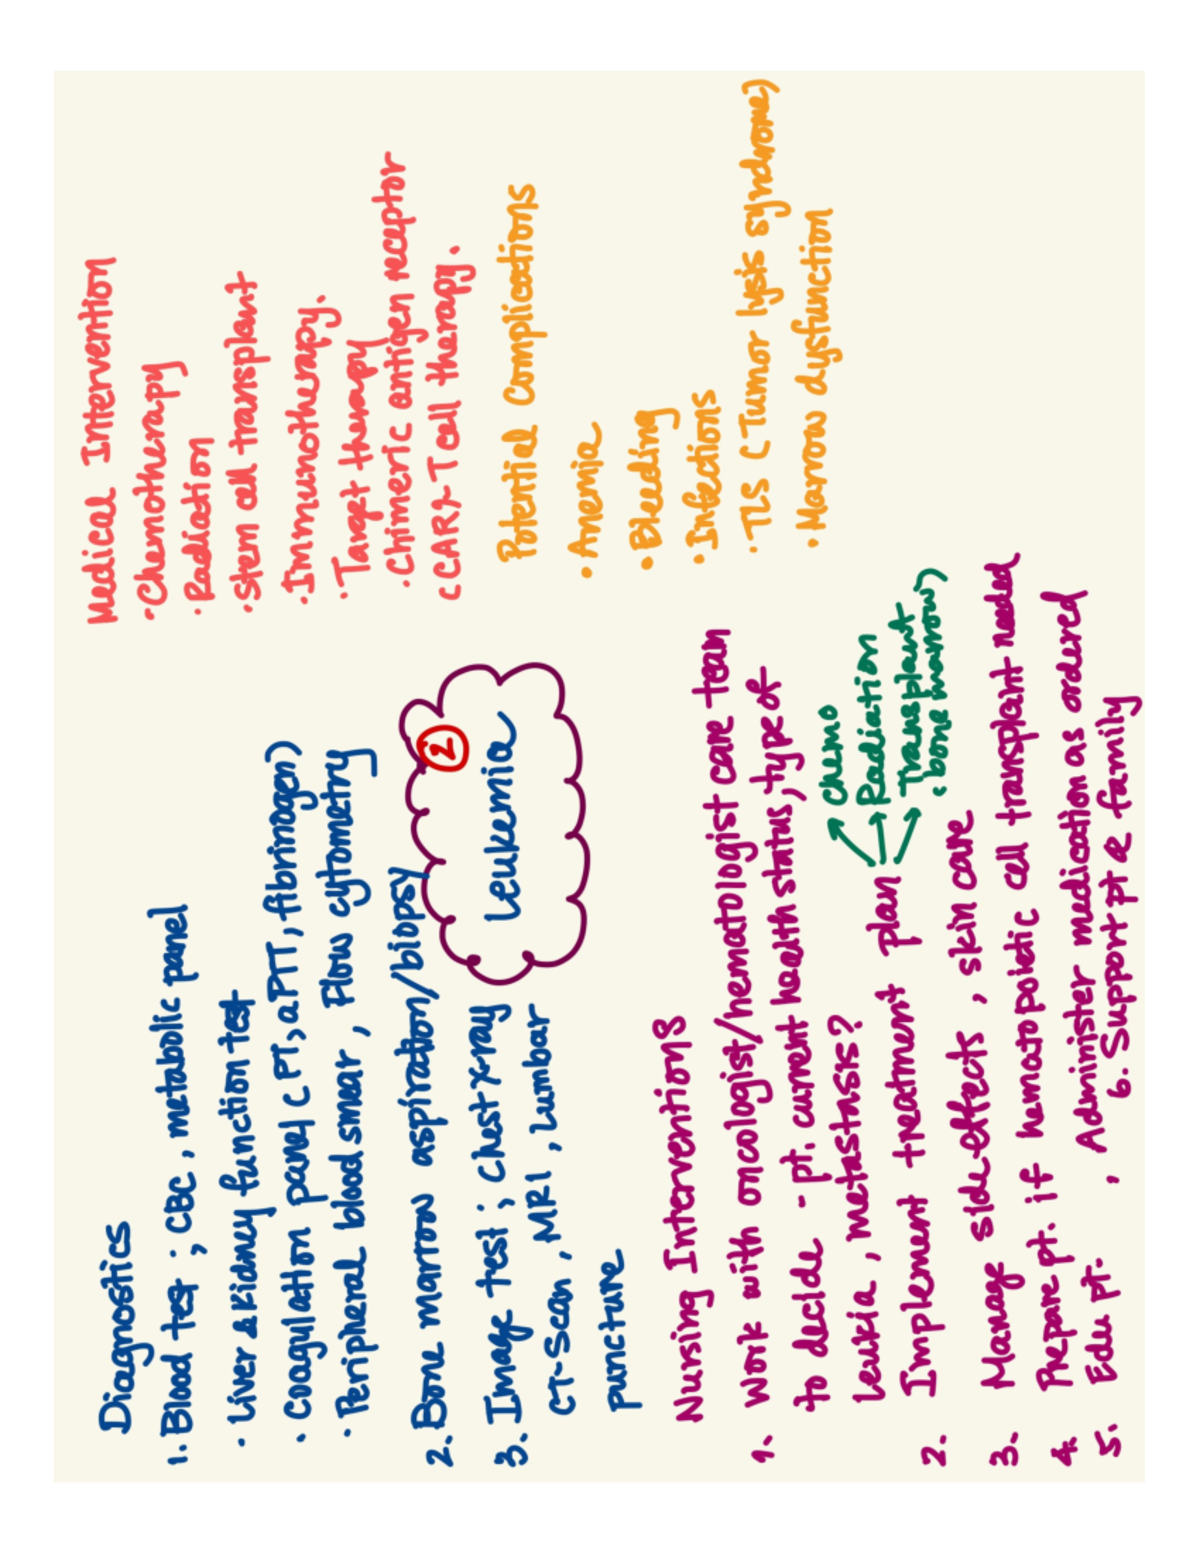 Diagnostics
1. Blood test ; CBC , metabolic panel
· Liver & kidney function test
· Coagulation panel ( PT, aPTT, fibrinogen)
· Peripheral blood smear , Flow cytometry
2. Bone marrow aspiration/biopsy
3. Image test ; Chest x-ray
CT-scan , MRI , Lumbar
puncture
Medical Intervention
· Chemotherapy
· Radiation
· stem cell transplant
· Immunotherapy.
· Target therapy
· Chimeric antigen receptor
(CAR)-T cell therapy.
2
Leukemia
Potential Complications
· Anemia
· Bleeding
· Infections
· TLS ( Tumor lysis syndrome)
· Marrow dysfunction
Nursing Interventions
1. Work with oncologist/hematologist care team
to decide - pt. current health status, type of
leukia , metastasis?
2. Implement treatment plan
Chemo
Radiation
Transplant
(bone marrow)
3. Manage side effects , skin care
4. Prepare pt. if hematopoietic cell transplant needed
5. Edu pt. , Administer medication as ordered
6. Support pt & family